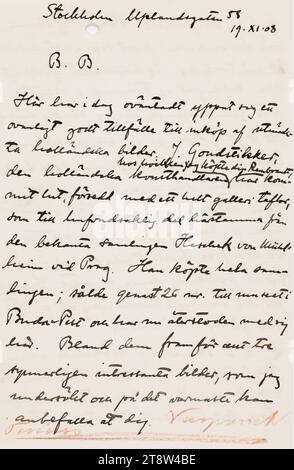 Stockholm Uplandsgatan 58
19.XI.08
B. B.
Här har i dag oväntadt yppat sig ett
ovanligt godt tillfälle till inköp af utmärk-
ta holländska bilder. J. Goudstikker,
den holländska konsthandlaren har kom-
mit hit, försedd med ett helt galleri taflor,
som till hufvudsaklig del härstamma från
den bekanta samlingen Hoschek von Mühl-
heim vid Prag. Han köpte hela sam-
lingen; sålde genast 26 nr. till museet i
Buda-Pest och har nu återstoden med sig
här. Bland dem framför allt tre
synnerligen intressanta bilder, som jag
undersökt och på det varmaste kan
anbefalla åt dig.
alamy
Image ID: 2T8W4BE
www.alamy.com